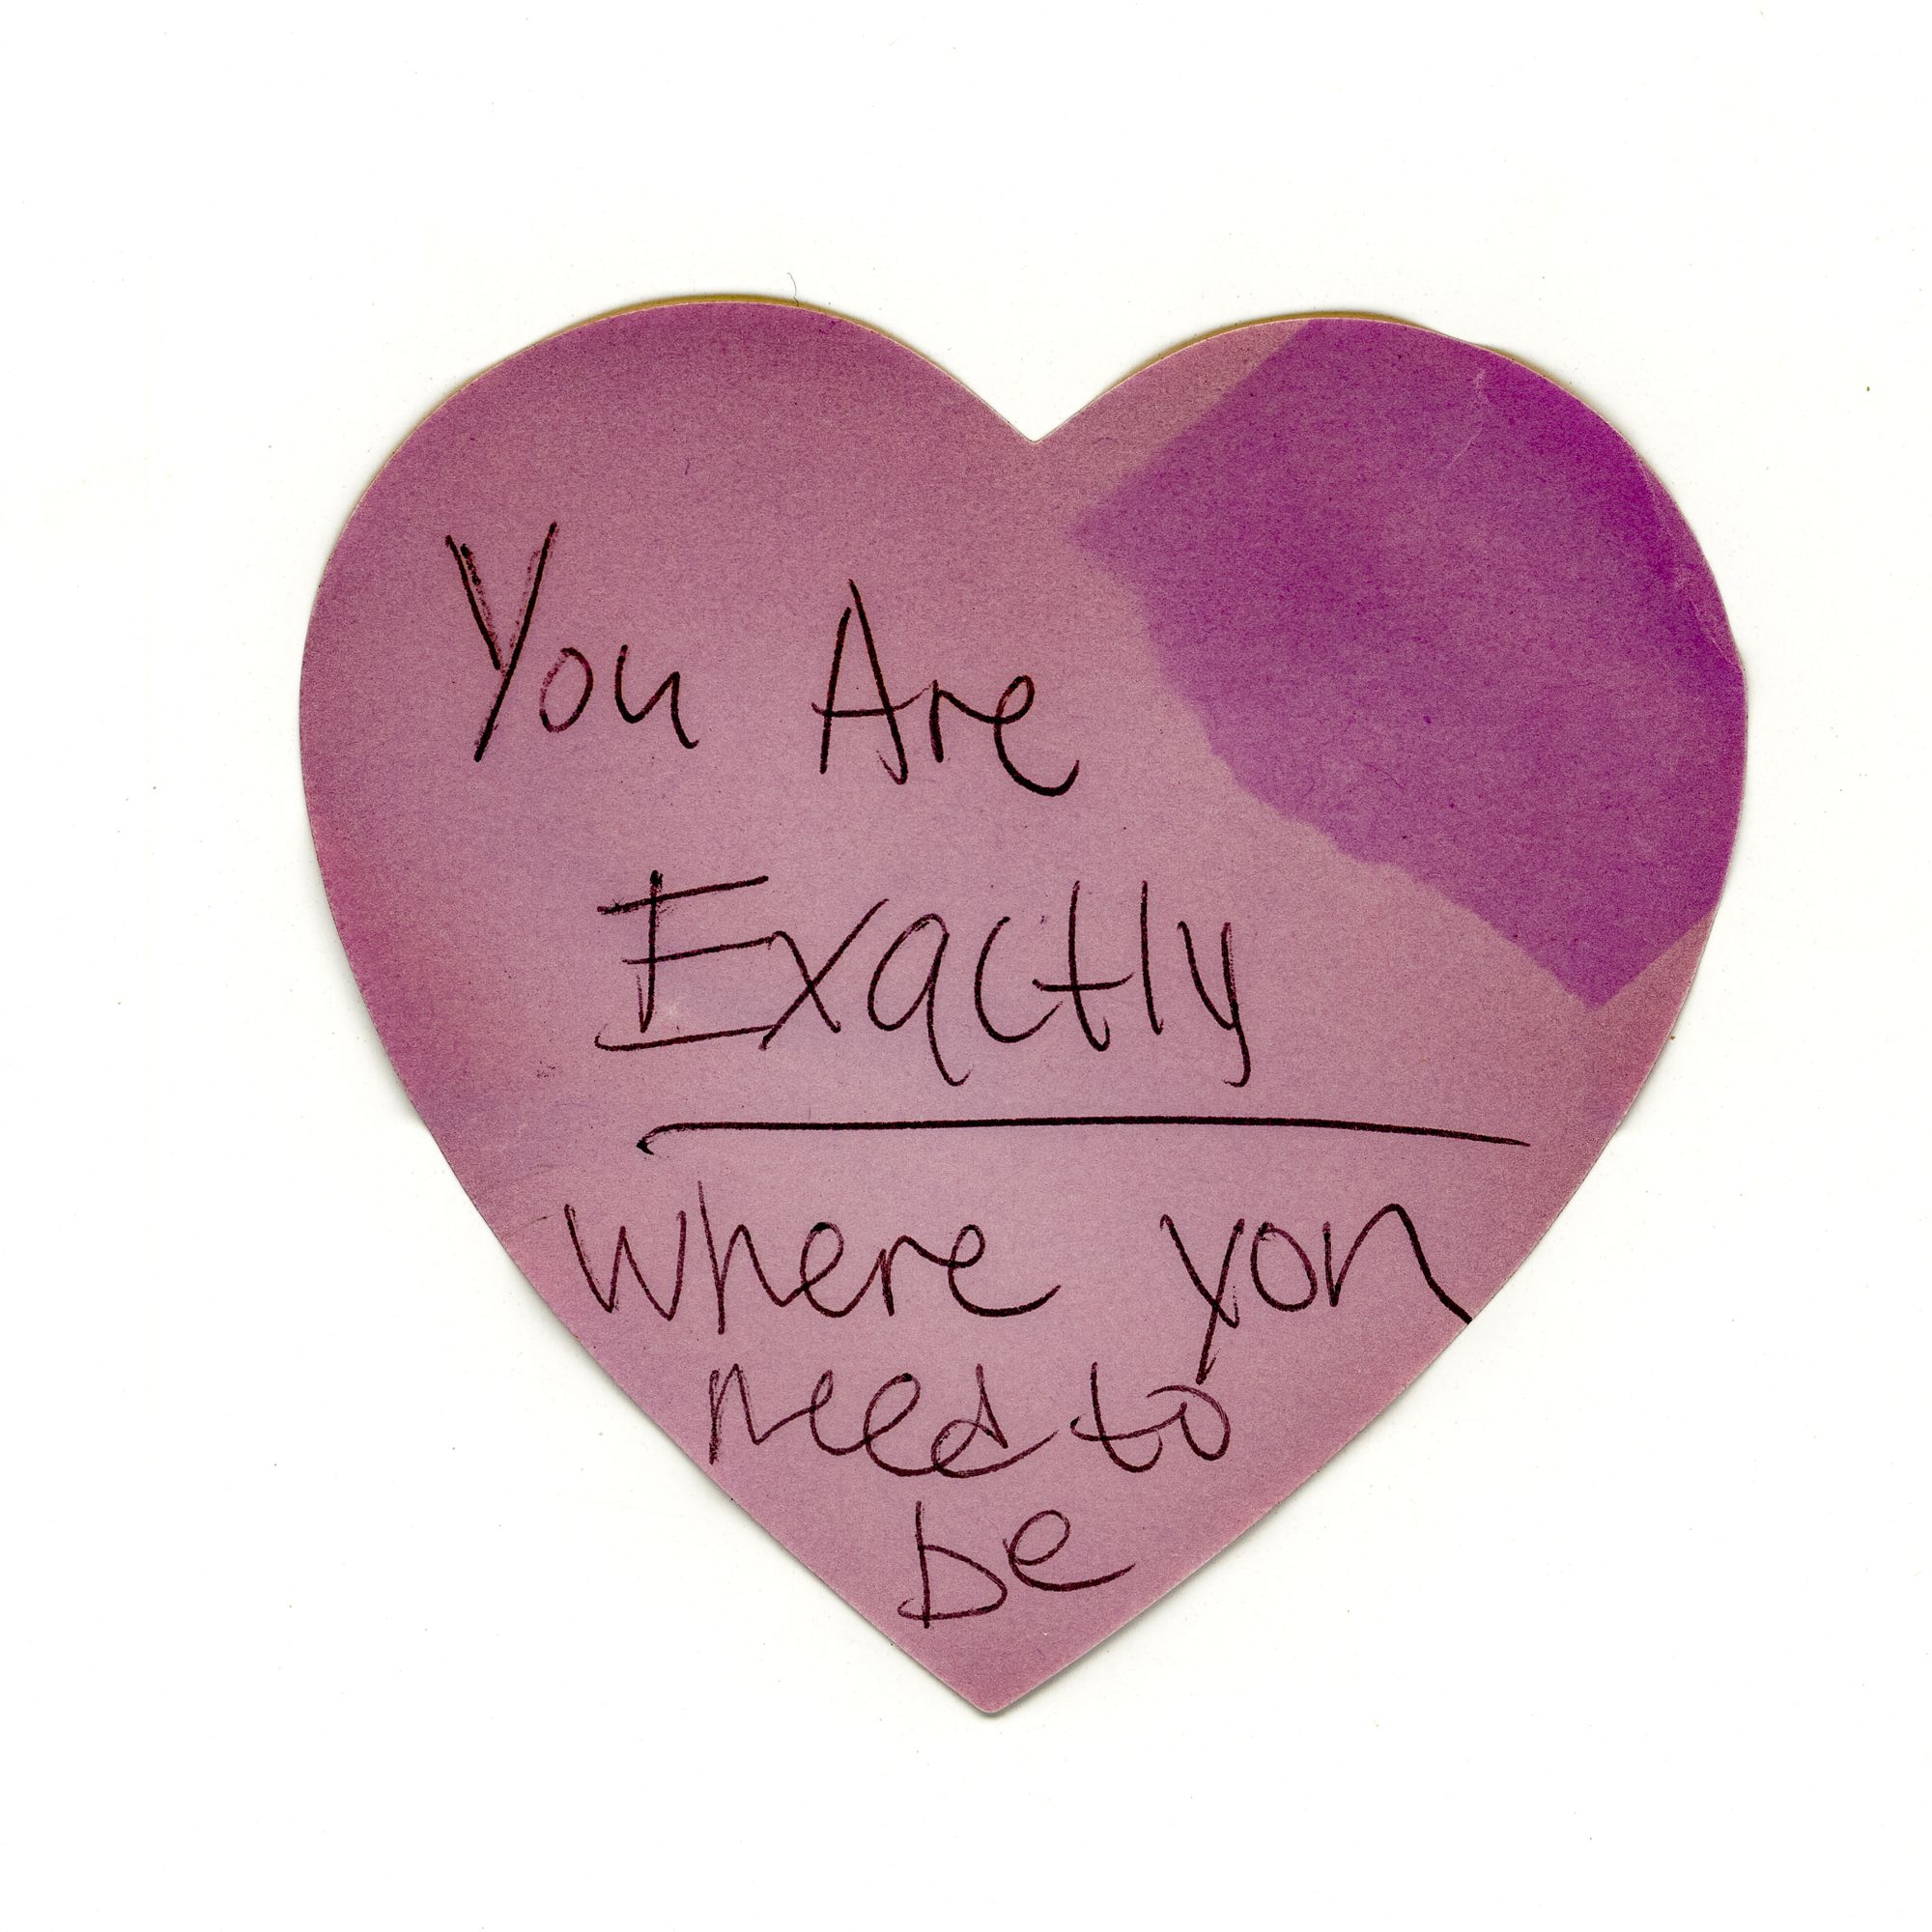 You Are
Exactly
where you
need to
be